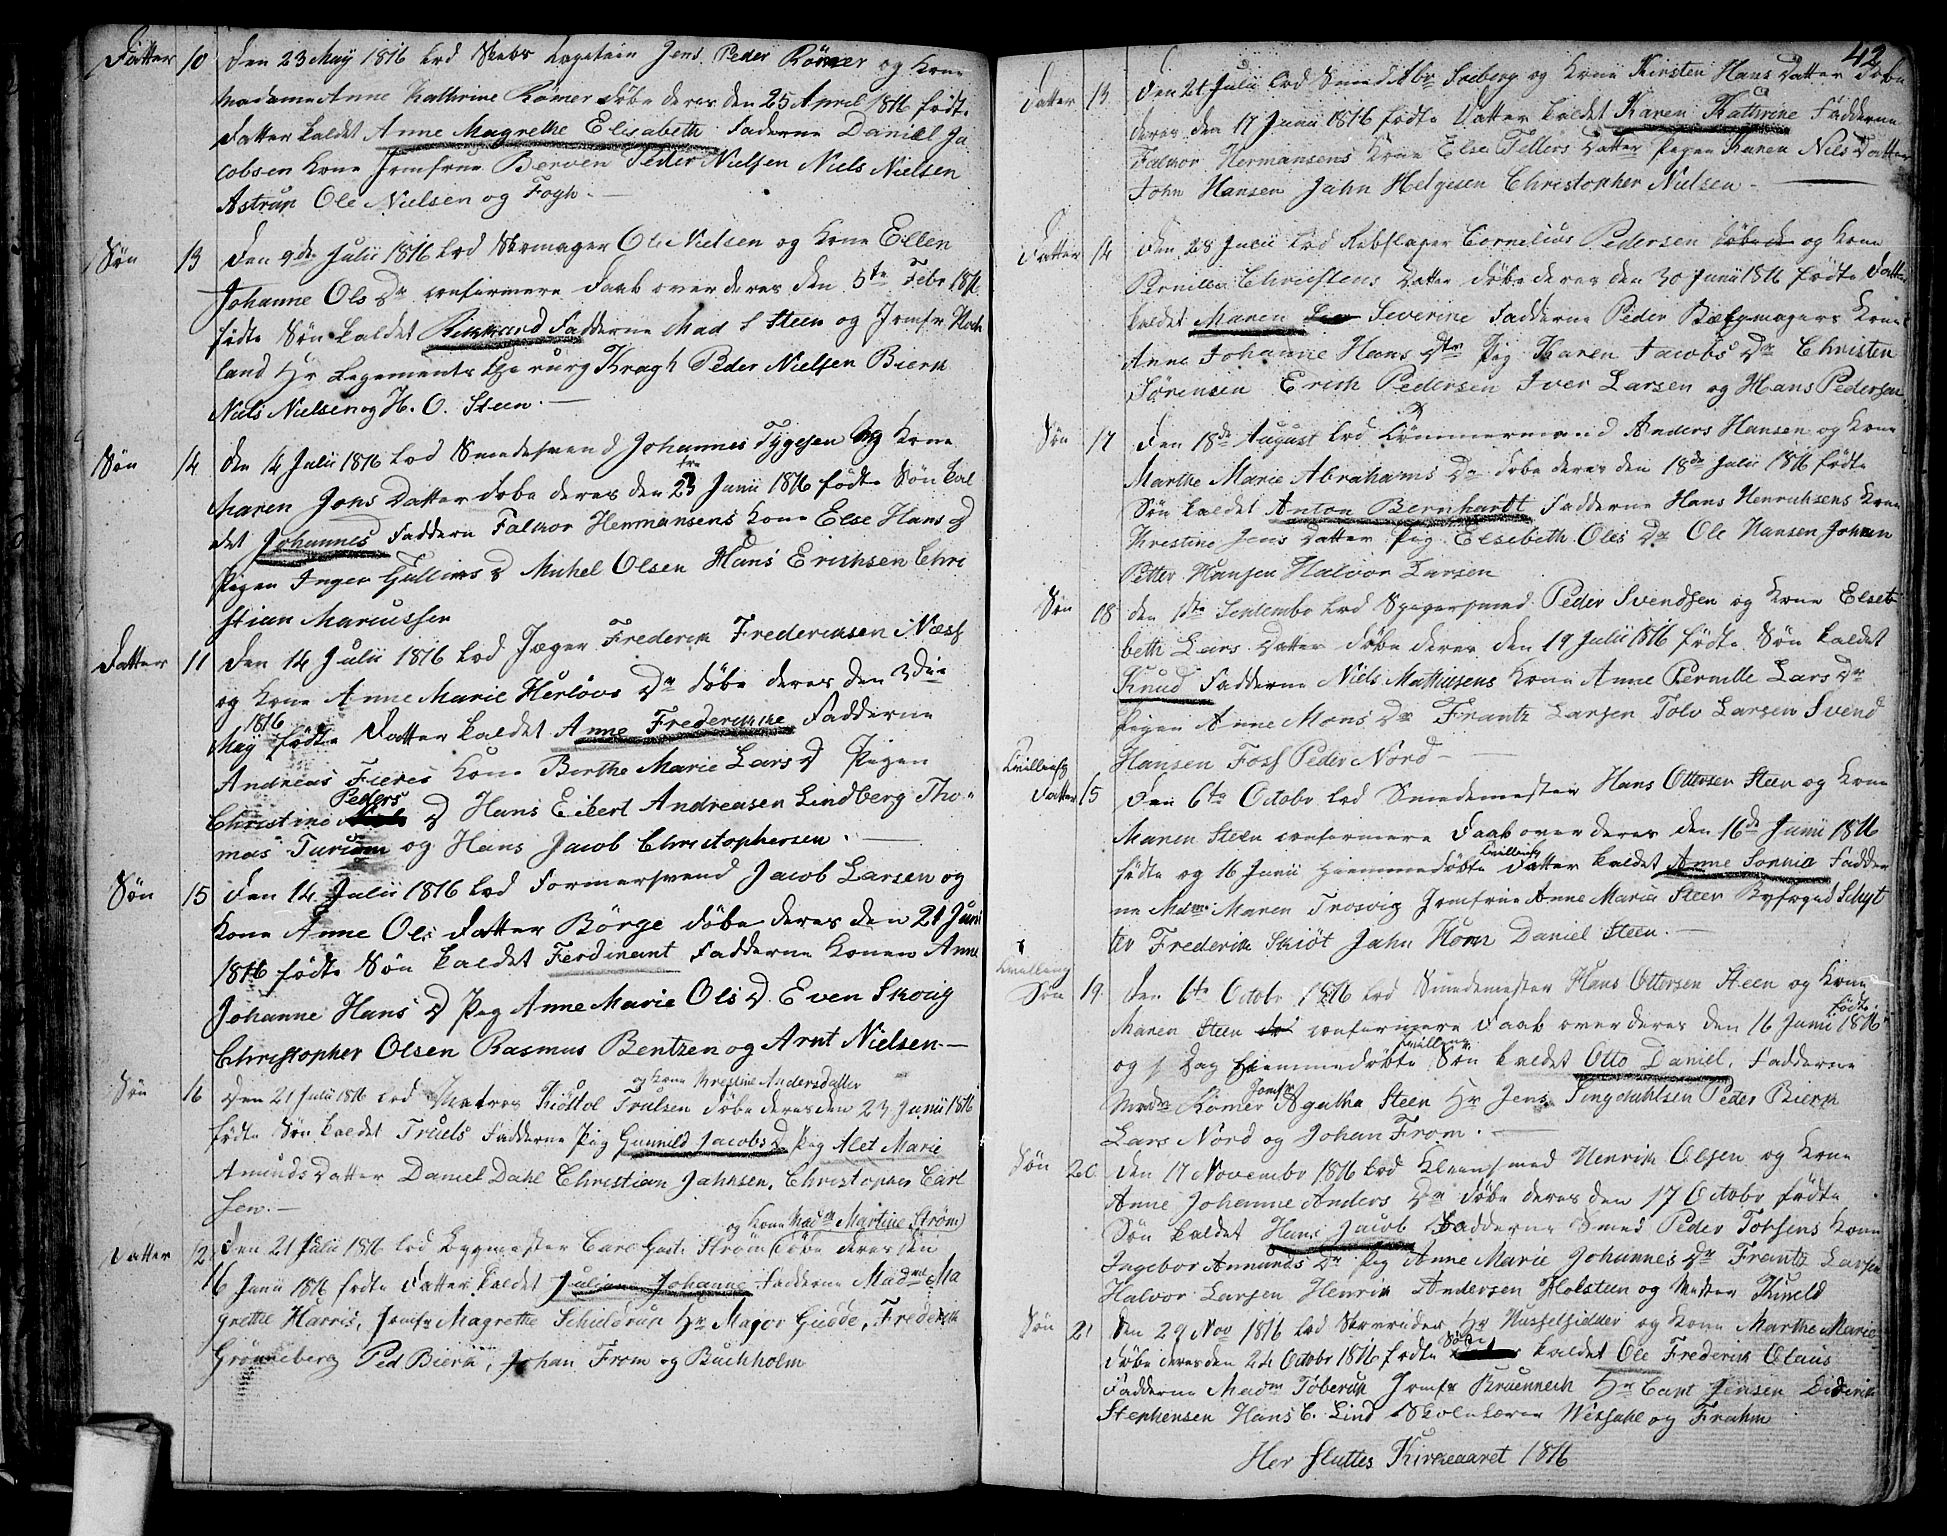 Datter 10 Den 23 May 1816 lod Skibs Capitain Jens Peder Römer og Kone
Madame Anne Kathrine Römer döbe deres den 25 April 1816 födte
Datter kaldet Anne Magrethe Elisabeth Fadderne Daniel Ja
cobsen Kone Jomfrue Berven Peder Nielsen Niels Nielsen
Astrup Ole Nielsen og Fogh.
Søn 13 Den 9de Julii 1816 lod Skomager Ole Nielsen og Kone Ellen
Johanne Ols Dr confirmere Daab over deres den 5te Febr 1816
födte Søn kaldet Fadderne Mad S Steen og Jomfr
land Hr Regements Kragh Peder Nielsen Bierk
Niels Nielsen og H. O. Steen.
Søn 14 Den 14 Julii 1816 lod Smedesvend Johannes Tygesen og Kone
Maren Jens Datter döbe deres den 23 Junii 1816 födte Søn kal
det Johannes Faddern Falkor Hermansens Kone Else Hans D
Pigen Inger D Michel Olsen Hans Erichsen Chri
stian Marcussen
Datter 11 Den 14 Julii 1816 lod Jæger Frederik Frederiksen Næss
og Kone Anne Marie Herlövs Dr döbe deres den 3die
May 1816 födte Datter kaldet Anne Frederikke Fadderne
Andreas Kone Berthe Marie Lars D Pigen
Christine Peders D Hans Eilert Andreasen Lindberg Tho-
mas og Hans Jacob Christophersen.
Søn 15 Den 14 Julii 1816 lod Formersvend Jacob Larsen og
Kone Anne Ols Datter Börge döbe deres den 21 Juni
1816 födte Søn kaldet Ferdinant Fadderne Konen Anne
Johanne Hans D Pig Anne Marie Ols D. Even Skovig
Christopher Olsen Rasmus Bentzen og Arnt Nielsen.
Søn 16 Den 21 Julii 1816 lod Matros Trulsen og Kone Krestine Andersdatter döbe deres den 23 Junii 1816
födte Søn kaldet Truels Fadderne Pig Gunnild Jacobs D Pig Alet Marie
Amunds Datter Daniel Dahl Christian Jahnsen, Christopher Carl
sen.
Datter 12 Den 21 Julii 1816 lod Bygmester Carl Gust. Ström og Kone Madm Martine Ström döbe deres den
16 Junii 1816 födte Datter kaldet Juliane Johanne Fadderne Madme Ma
grethe Harris, Jomfr Magrethe Schieldrup Hr Major Gudde, Frederik
Grönneberg Ped Bierk, Johan From og Buchholm
42
Datter 13 Den 21 Julii lod Smed Abr Soeberg og Kone Kirsten Hans Datter döbe
deres den 17 Junii 1816 födte Datter kaldet Karen Kathrine Fadderne
Falkor Hermansens Kone Else Pigen Karen Nils Datter
John Hansen Jahn Helgesen Christopher Nielsen.
Datter 14 Den 28 Julii lod Rebslager Cornelius Pedersen og Kone
Pernille Christens Datter döbe deres den 30 Junii 1816 födte Datter
kaldet Maren Severine Fadderne Peder Kone
Anne Johanne Hans Dtr Pig Karen Jacobs Dr Christen
Sörensen Erich Pedersen Iver Larsen og Hans Pedersen.
Søn 17 Den 18de August lod Tömmermand Anders Hansen og Kone
Marthe Marie Abrahams Dr döbe deres den 18de Julii 1816 födte
Søn kaldet Anton Bernhardt Fadderne Hans Henrichsens Kone
Krestine Jens Datter Pig Elsebeth Oles Dr Ole Hansen Johan
Petter Hansen Halvor Larsen
Søn 18 Den 1ste Septembr lod Spigersmed Peder Svendsen og Kone Elseb
beth Lars Datter döbe deres den 19 Julii 1816 födte Søn kaldet
Knud Fadderne Niels Mathiesens Kone Anne Pernille Lars Dr
Pigen Anne Mons Dr Frantz Larsen Tolv Larsen Svend
Hansen Foss Peder Nord
Tvilling
Datter 15 Den 6te Octobr lod Smedemester Hans Ottersen Steen og Kone
Maren Steen confirmere Daab over deres den 16de Junii 1816
födte og 16 Junii hiemmedöbte Tvilling Datter kaldet Anne Sophia Fadder
ne Mdme Maren Trosvig Jomfrue Anne Maria Steen Byfoged Schyt
ter Frederik Skiöt Jahn Horn Daniel Steen.
Tvilling
Søn 19 Den 6te Octobr 1816 lod Smedemester Hans Ottersen Steen og Kone
Maren Steen confirmere Daab over deres den 16 Junii 1816 födte
og s Dag hiemmedöbte Tvilling Søn kaldet Otto Daniel. Fadderne
Mada Römer Jomfr Agatha Steen Hr Jens Tingdahlsen Peder Bierk
Lars Nord og Johan From.
Søn 20 Den 17 Novembr 1816 lod Kleensmed Henrik Olsen og Kone
Anne Johanne Anders Dr döbe deres den 17 Octobr födte
Søn kaldet Hans Jacob Fadderne Smed Peder Torsens Kone
Ingebor Amunds Dr Pig Anne Marie Johannes Dr Frantz Larsen
Halvor Larsen Henrik Andersen Holsteen og Mester
Søn 21 Den 29 Nov 1816 lod og Kone Marthe Marie
döbe deres den 24 Octobr 1816 födte Søn kaldet Ole Frederik Olaus
Fadderne Madm Töberuk Jomfr Hr Capt Jensen Diderik
Stephensen Hans C. Lind Skolelærer Wesfahl og Frahm
Her sluttes Kirkeaaret 1816